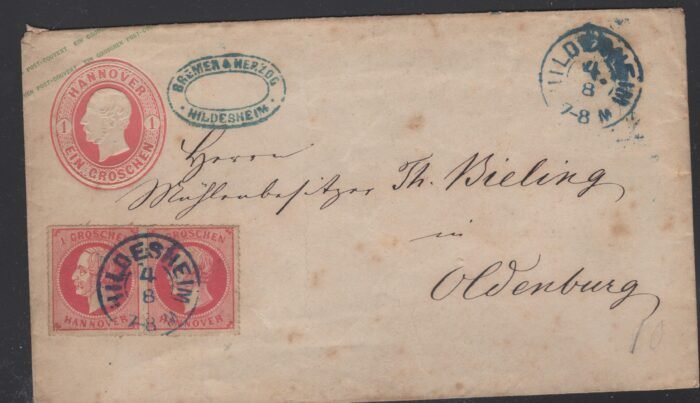 POST-COUVERT. EIN GROSCHEN POST-COUVERT. EIN GROSCHEN
HANNOVER
1 1
EIN GROSCHEN
BREMER & HERZOG
HILDESHEIM
HILDESHEIM
4
8
7-8 M
Herrn
Mühlenbesitzer Th. Bieling
in
Oldenburg
1 GROSCHEN
HANNOVER
GROSCHEN
HANNOVER
HILDESHEIM
4
8
7-8 M